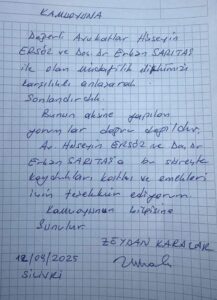 KAMUOYUNA
Değerli Avukatlar Hüseyin
ERSÖZ ve Doç. Dr. Erkan SARITAŞ
ile olan müvekkillik ilişkimizi
karşılıklı anlaşarak
Sonlandırdık.
Bunun aksine yapılan
yorumlar doğru değildir.
Av Hüseyin ERSÖZ ve Doç. Dr
Erkan SARITAŞ'a bu süreçte
koydukları katkı ve emekleri
için teşekkür ediyorum.
Kamuoyunun bilgisine
Sunulur.
ZEYDAN KARALAR
12/04/2025
SİLİVRİ